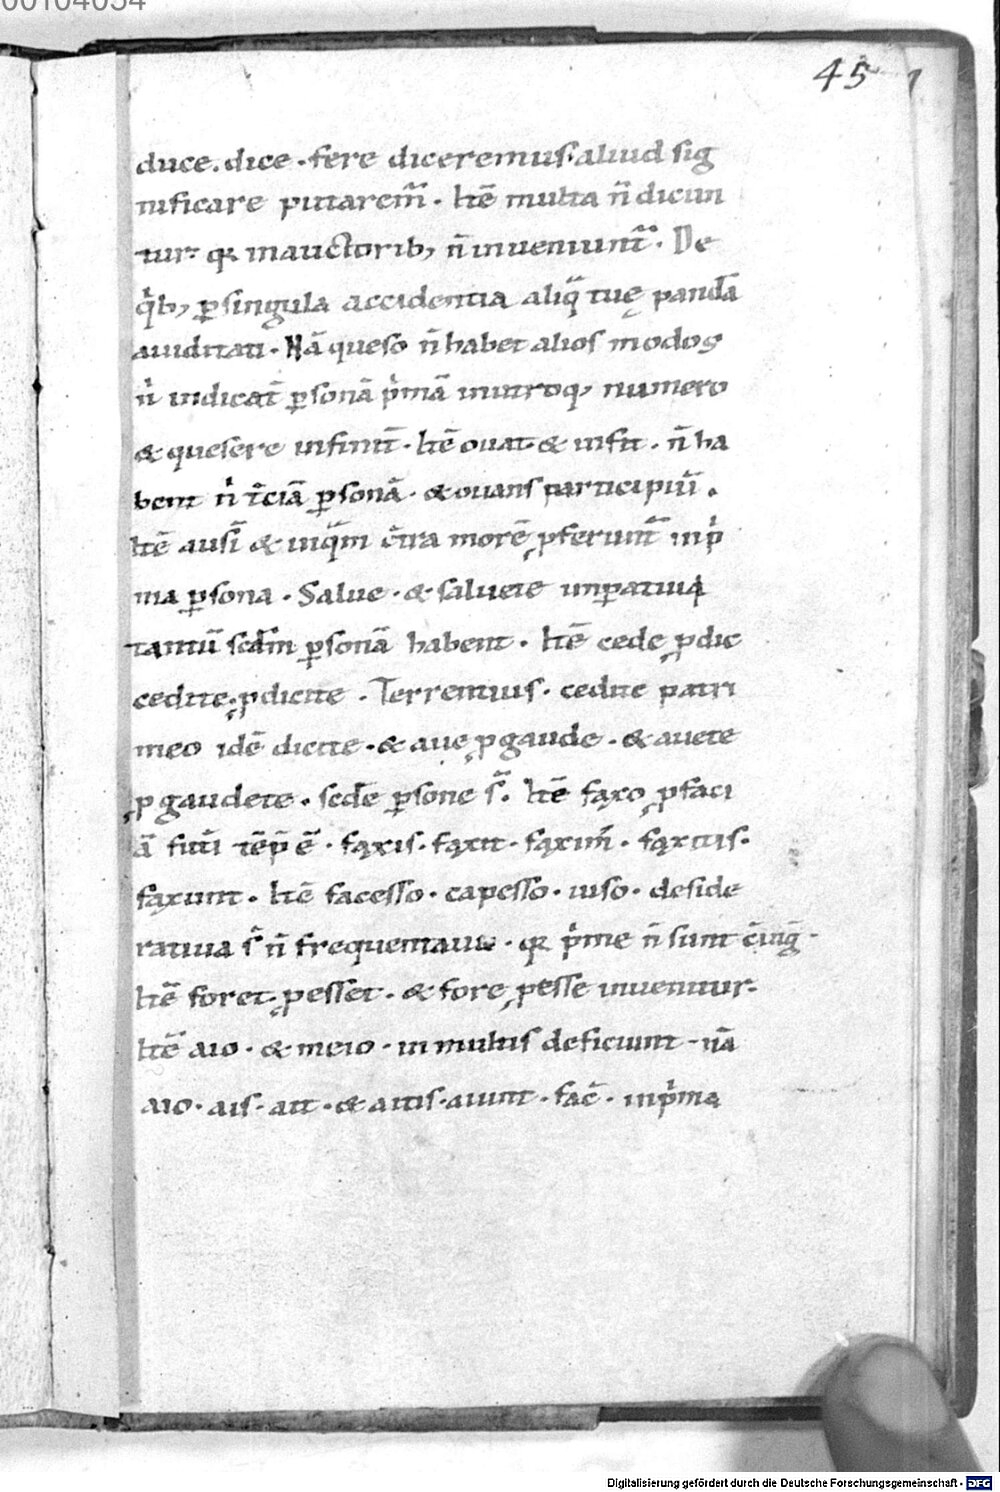 00104054
45
duce. dice. fere diceremus. aliud sig
nificare putarem̃. Itē multa ñ dicun
tur qꝛ in auctorib; ñ inueniunt̃. De
q̊b; ꝑ singula accidentia aliq̃ tuę pandā
auiditati. Nā queso ñ habet alios modos
n̊ indicat̄ ꝑsonā p̊mā in utroq; numero
& quesere infinit̄. Itē ouat & infit. ñ ha
bent n̊ t̄ciā ꝑsonā. & ouans participiū.
Itē ausī & inq̃m c̄tra morē ꝓferunt̄ in p̊
ma ꝑsona. Salue. & saluete inꝑatiua
tantū scd̄m ꝑsonā habent. Itē cede ꝓ dic
cedite. ꝓ dicite. Terrentius. cedite patri
meo idē dicite. & aue ꝓ gaude. & auete
ꝓ gaudete. scd̄e ꝑsone s̄. Itē faxo ꝓ faci
ā fut̄i tēp̄ ē. faxis. faxit. faxim̄. faxitis.
faxunt. Itē facesso. capesso. uiso. deside
ratiua s̄ ñ frequentatiua. qꝛ p̊me ñ sunt c̄iug̃.
Itē foret. ꝓ esset. & fore ꝓ esse inuenitur.
Itē aio. & meio. in multis deficiunt. nā
aio. ais. ait. & aitis. aiunt. fac̄. in p̊ma
Digitalisierung gefördert durch die Deutsche Forschungsgemeinschaft - DFG